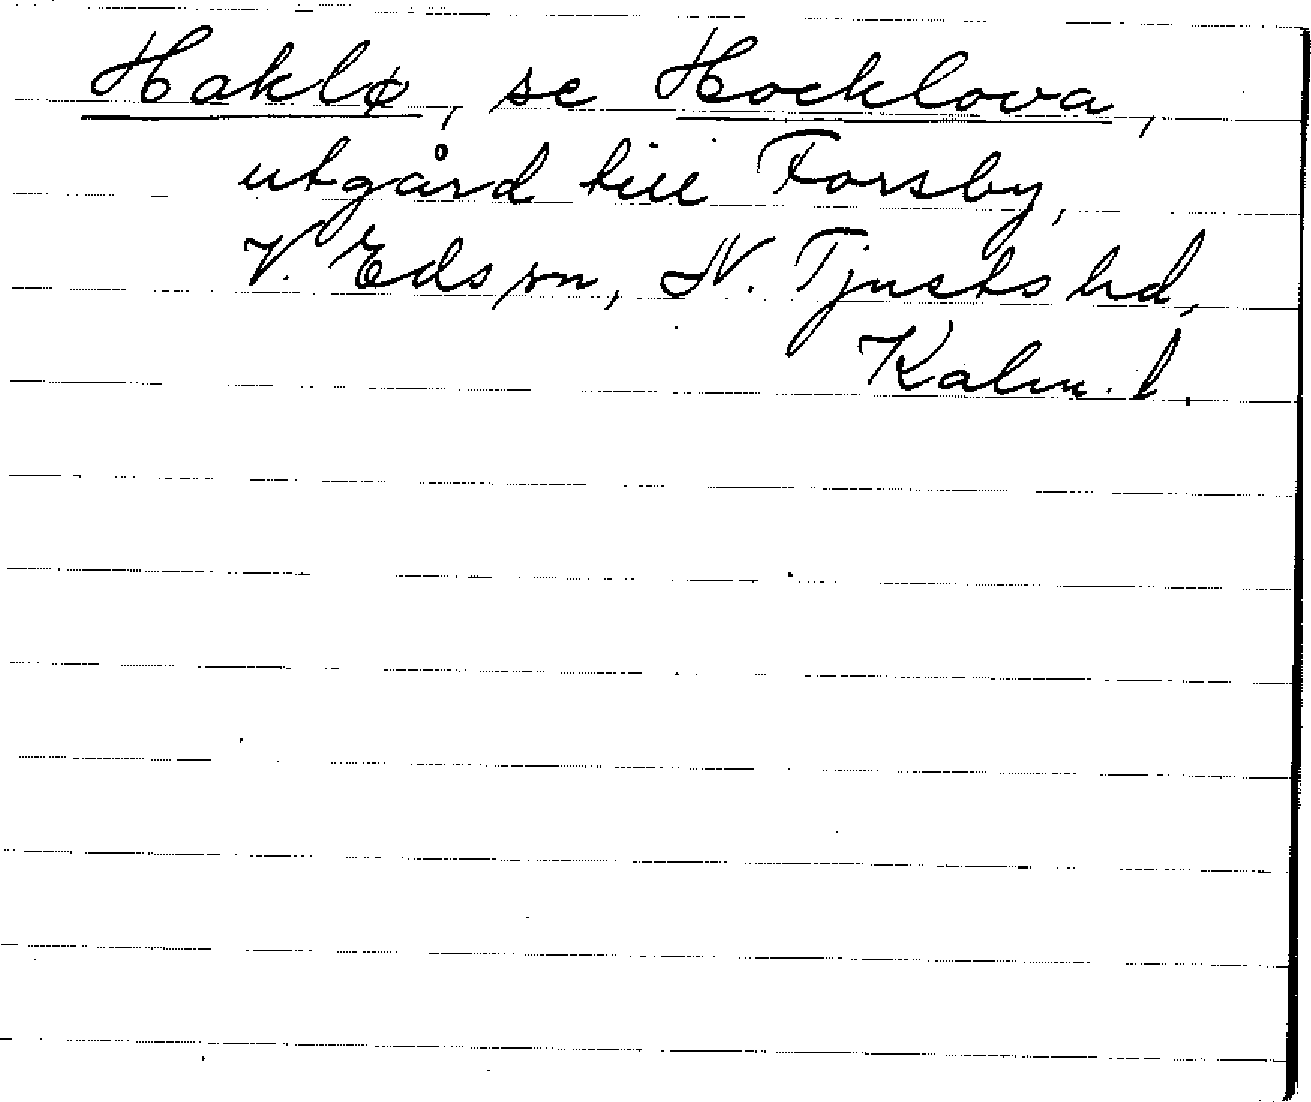 Haklø, se Hocklova,
utgård till Forsby,
V. Eds sn, N. Tjusts hd,
Kalm. l.